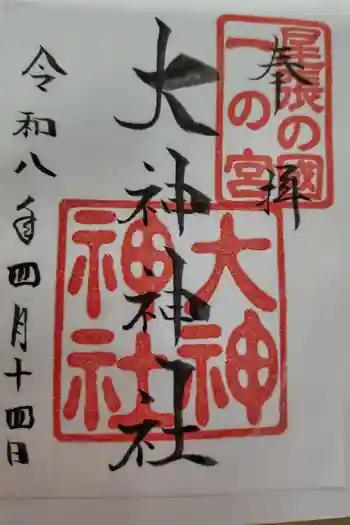 奉拝
尾張の國
一の宮
大神神社
大神
神社
令和八年四月十四日